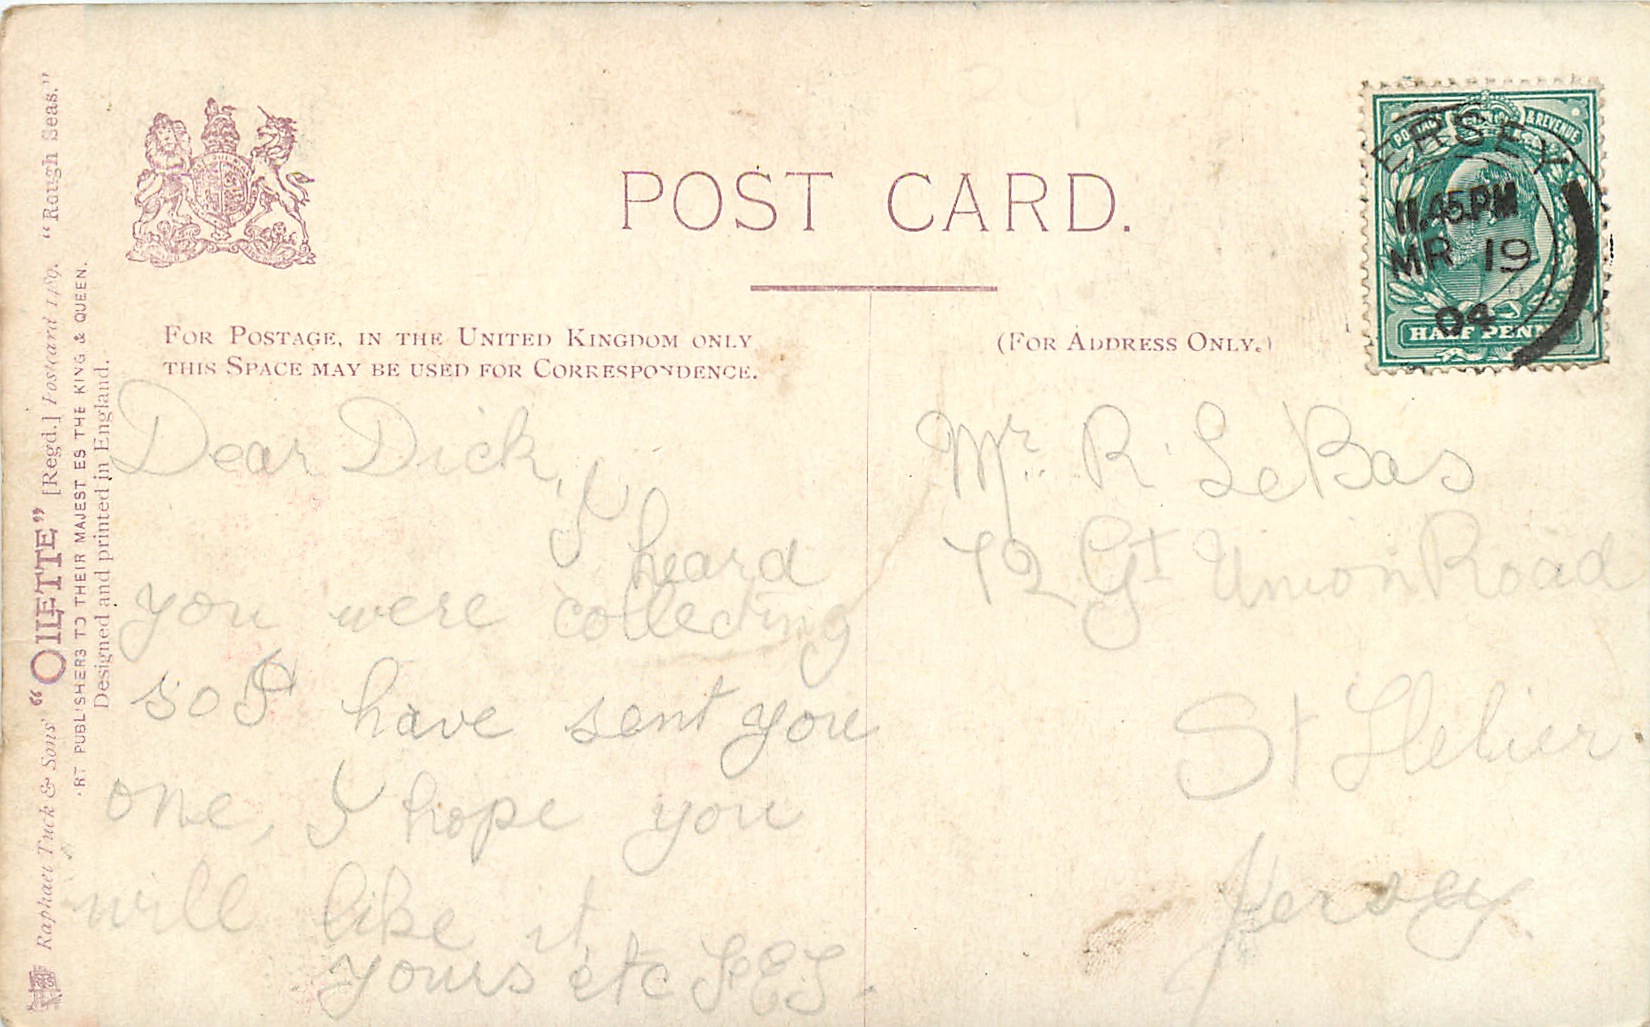 POST CARD.
FOR POSTAGE, IN THE UNITED KINGDOM ONLY
THIS SPACE MAY BE USED FOR CORRESPONDENCE.
(FOR ADDRESS ONLY.)
Dear Dick,
I heard
you were collecting
so I have sent you
one, I hope you
will like it
yours etc
Mr. R. Le Bas
72 Gt Union Road
St Helier
Jersey.
POSTAGE & REVENUE
HALF PENNY
ERSEY
11.45 PM
MR 19
04
Raphael Tuck & Sons' "OILETTE" [Regd.] Postcard 1489. "Rough Seas."
ART PUBLISHERS TO THEIR MAJESTIES THE KING & QUEEN.
Designed and printed in England.